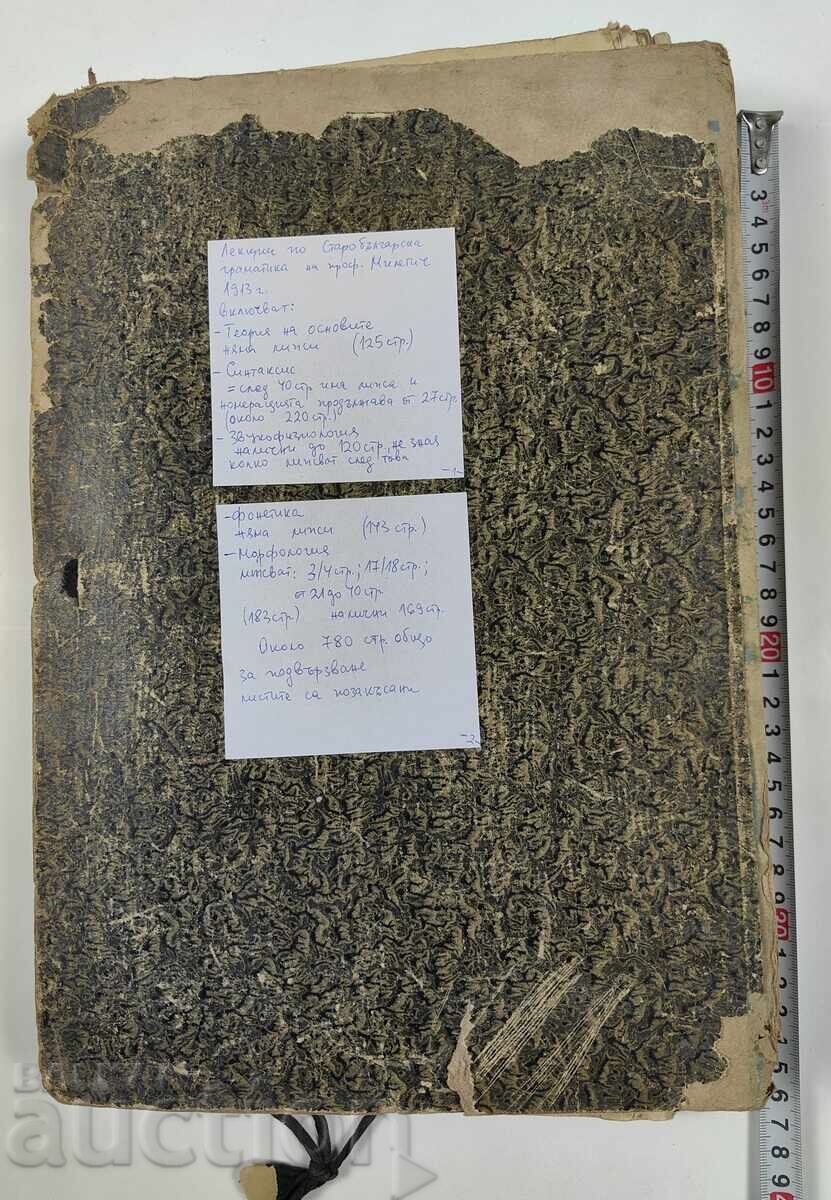 Лекции по Старобългарска
граматика на проф. Милетич
1913 г.
Включват:
- Теория на основите
няма липси (125 стр.)
- Синтаксис
= след 40 стр има липса и
номерацията продължава от 27 стр.
(около 220 стр.)
- Звукофизиология
налични до 120 стр, не зная
колко липсват след това
-1-
- Фонетика
няма липси (173 стр.)
- Морфология
липсват: 3/4 стр.; 17/18 стр.;
от 21 до 40 стр.
(183 стр.) налични 169 стр.
Около 780 стр. общо
за подвързване
листите са позакъсани
-2-
3 4 5 6 7 8 9 10 1 2 3 4 5 6 7 8 9 20 1 2 3 4 5 6 7 8 9
auction